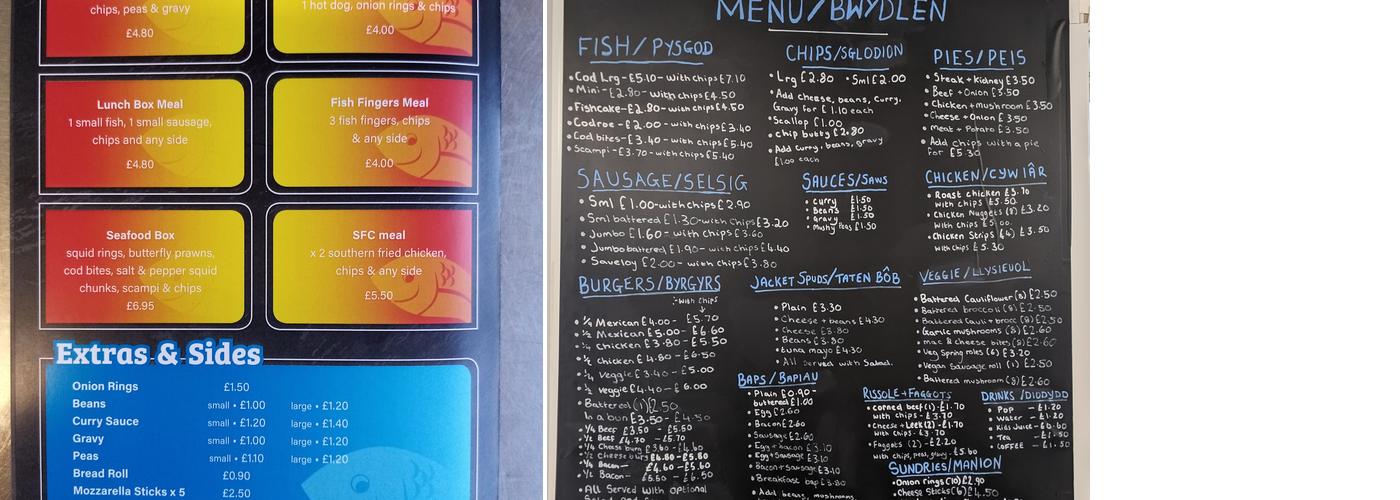 chips, peas & gravy
£4.80
1 hot dog, onion rings & chips
£4.00
Lunch Box Meal
1 small fish, 1 small sausage,
chips and any side
£4.80
Fish Fingers Meal
3 fish fingers, chips
& any side
£4.00
Seafood Box
squid rings, butterfly prawns,
cod bites, salt & pepper squid
chunks, scampi & chips
£6.95
SFC meal
x 2 southern fried chicken,
chips & any side
£5.50
Extras & Sides
Onion Rings £1.50
Beans small • £1.00 large • £1.20
Curry Sauce small • £1.20 large • £1.40
Gravy small • £1.00 large • £1.20
Peas small • £1.10 large • £1.20
Bread Roll £0.90
Mozzarella Sticks x 5 £2.50
MENU/BWYDLEN
FISH/PYSGOD
• Cod Lrg - £5.10 - with chips £7.10
• Mini - £2.80 - with chips £4.50
• Fishcake - £2.80 - with chips £4.50
• Codroe - £2.00 - with chips £3.40
• Cod bites - £3.40 - with chips £5.40
• Scampi - £3.70 - with chips £5.40
CHIPS/SGLODION
• Lrg £2.80 • Sml £2.00
• Add cheese, beans, curry,
Gravy for £1.10 each
• Scallop £1.00
• chip butty £2.80
• Add curry, beans, gravy
£1.00 each
PIES/PEIS
• Steak + kidney £3.50
• Beef + Onion £3.50
• Chicken + mushroom £3.50
• Cheese + Onion £3.50
• Meat + Potato £3.50
• Add chips with a pie
for £5.30
SAUSAGE/SELSIG
• Sml £1.00 - with chips £2.90
• Sml battered £1.30 - with chips £3.20
• Jumbo £1.60 - with chips £3.60
• Jumbo battered £1.90 - with chips £4.40
• Saveloy £2.00 - with chips £3.80
SAUCES/SAWS
• Curry £1.50
• Beans £1.50
• Gravy £1.50
• Mushy Peas £1.50
CHICKEN/CYW IÂR
• Roast chicken £3.70
with chips £5.50
• Chicken Nuggets (8) £3.20
with chips £5.00
• Chicken Strips (4) £3.50
with chips £5.30
BURGERS/BYRGYRS
with chips
• 1/4 Mexican £4.00 - £5.70
• 1/2 Mexican £5.00 - £6.60
• 1/4 chicken £3.80 - £5.50
• 1/2 chicken £4.80 - £6.50
• 1/4 veggie £3.40 - £5.00
• 1/2 veggie £4.40 - £6.00
• Battered (1) £2.50
In a bun £3.50 - £4.50
• 1/4 Beef £3.50 - £5.50
• 1/2 Beef £4.70 - £5.70
• 1/4 Cheese burg £3.60 - £4.60
• 1/2 Cheese burg £4.80 - £5.80
• 1/4 Bacon - £4.60 - £5.60
• 1/2 Bacon - £5.50 - £6.50
• All Served with optional
JACKET SPUDS/TATEN BÔB
• Plain £3.30
• Cheese + beans £4.30
• Cheese £3.80
• Beans £3.80
• tuna mayo £4.30
• All served with Salad.
VEGGIE/LLYSIEUOL
• Battered Cauliflower (8) £2.50
• Battered broccoli (8) £2.50
• Battered Cauli + brocc (8) £2.50
• Garlic mushrooms (8) £2.60
• mac & cheese bites (8) £2.60
• Veg Spring roles (6) £3.20
• Vegan Sausage roll (1) £2.50
• Battered mushroom (8) £2.60
BAPS/BAPIAU
• Plain £0.90 -
buttered £1.00
• Egg £2.60
• Bacon £2.60
• Sausage £2.60
• Egg + bacon £3.10
• Egg + Sausage £3.10
• Bacon + Sausage £3.10
• Breakfast bap £3.80
• Add beans, mushrooms,
RISSOLE + FAGGOTS
• corned beef (1) - £1.70
with chips - £3.70
• Cheese + Leek (2) - £1.70
with chips - £3.70
• Faggots (2) - £2.20
with chips, peas, gravy - £5.60
DRINKS/DIODYDD
• Pop - £1.20
• Water - £1.20
• Kids Juice - £0.60
• Tea - £1.50
• COFFEE - £1.50
SUNDRIES/MANION
• Onion rings (10) £2.90
• Cheese Sticks (6) £4.50